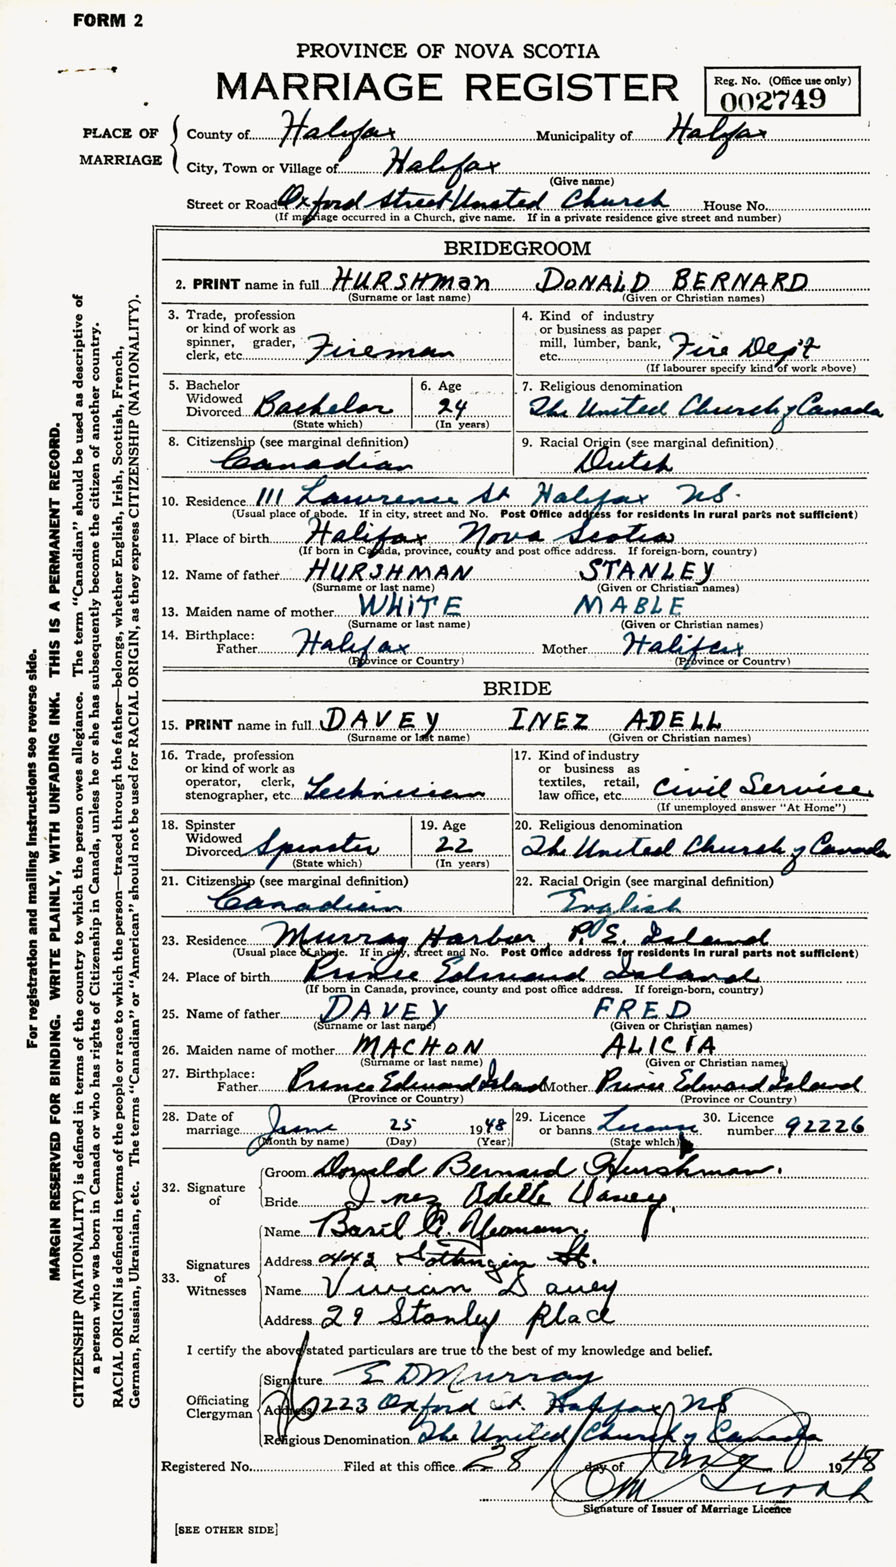 FORM 2
PROVINCE OF NOVA SCOTIA
MARRIAGE REGISTER
Reg. No. (Office use only)
002749
PLACE OF MARRIAGE
County of Halifax Municipality of Halifax
City, Town or Village of Halifax
(Give name)
Street or Road Oxford Street United Church House No.
(If marriage occurred in a Church, give name. If in a private residence give street and number)
BRIDEGROOM
2. PRINT name in full HURSHMan DONALD BERNARD
(Surname or last name) (Given or Christian names)
3. Trade, profession or kind of work as spinner, grader, clerk, etc. Fireman
4. Kind of industry or business as paper mill, lumber, bank, etc. Fire Dep't
(If labourer specify kind of work above)
5. Bachelor Widowed Divorced Bachelor
(State which)
6. Age 24
(In years)
7. Religious denomination
The United Church of Canada
8. Citizenship (see marginal definition)
Canadian
9. Racial Origin (see marginal definition)
Dutch
10. Residence 111 Lawrence St Halifax NS.
(Usual place of abode. If in city, street and No. Post Office address for residents in rural parts not sufficient)
11. Place of birth Halifax Nova Scotia
(If born in Canada, province, county and post office address. If foreign-born, country)
12. Name of father HURSHMAN STANLEY
(Surname or last name) (Given or Christian names)
13. Maiden name of mother WHITE MABLE
(Surname or last name) (Given or Christian names)
14. Birthplace: Father Halifax Mother Halifax
(Province or Country) (Province or Country)
BRIDE
15. PRINT name in full DAVEY INEZ ADELL
(Surname or last name) (Given or Christian names)
16. Trade, profession or kind of work as operator, clerk, stenographer, etc. Technician
17. Kind of industry or business as textiles, retail, law office, etc. Civil Service
(If unemployed answer "At Home")
18. Spinster Widowed Divorced Spinster
(State which)
19. Age 22
(In years)
20. Religious denomination
The United Church of Canada
21. Citizenship (see marginal definition)
Canadian
22. Racial Origin (see marginal definition)
English
23. Residence Murray Harbor P.E. Island
(Usual place of abode. If in city, street and No. Post Office address for residents in rural parts not sufficient)
24. Place of birth Prince Edward Island
(If born in Canada, province, county and post office address. If foreign-born, country)
25. Name of father DAVEY FRED
(Surname or last name) (Given or Christian names)
26. Maiden name of mother MACHON ALICIA
(Surname or last name) (Given or Christian names)
27. Birthplace: Father Prince Edward Island Mother Prince Edward Island
(Province or Country) (Province or Country)
28. Date of marriage June 25 1948
(Month by name) (Day) (Year)
29. Licence or banns License
(State which)
30. Licence number 92226
32. Signature of
Groom Donald Bernard Hurshman.
Bride Inez Adelle Davey.
33. Signatures of Witnesses
Name Basil
Address 442 St.
Name Vivian Davey
Address 29 Stanley Place
I certify the above stated particulars are true to the best of my knowledge and belief.
Officiating Clergyman
Signature E D Murray
Address 223 Oxford St. Halifax NS
Religious Denomination The United Church of Canada
Registered No. Filed at this office 28 day of June 1948
Signature of Issuer of Marriage Licence
[SEE OTHER SIDE]
For registration and mailing instructions see reverse side.
MARGIN RESERVED FOR BINDING. WRITE PLAINLY, WITH UNFADING INK. THIS IS A PERMANENT RECORD.
CITIZENSHIP (NATIONALITY) is defined in terms of the country to which the person owes allegiance. The term "Canadian" should be used as descriptive of
a person who was born in Canada or who has rights of Citizenship in Canada, unless he or she has subsequently become the citizen of another country.
RACIAL ORIGIN is defined in terms of the people or race to which the person—traced through the father—belongs, whether English, Irish, Scottish, French,
German, Russian, Ukrainian, etc. The terms "Canadian" or "American" should not be used for RACIAL ORIGIN, as they express CITIZENSHIP (NATIONALITY).